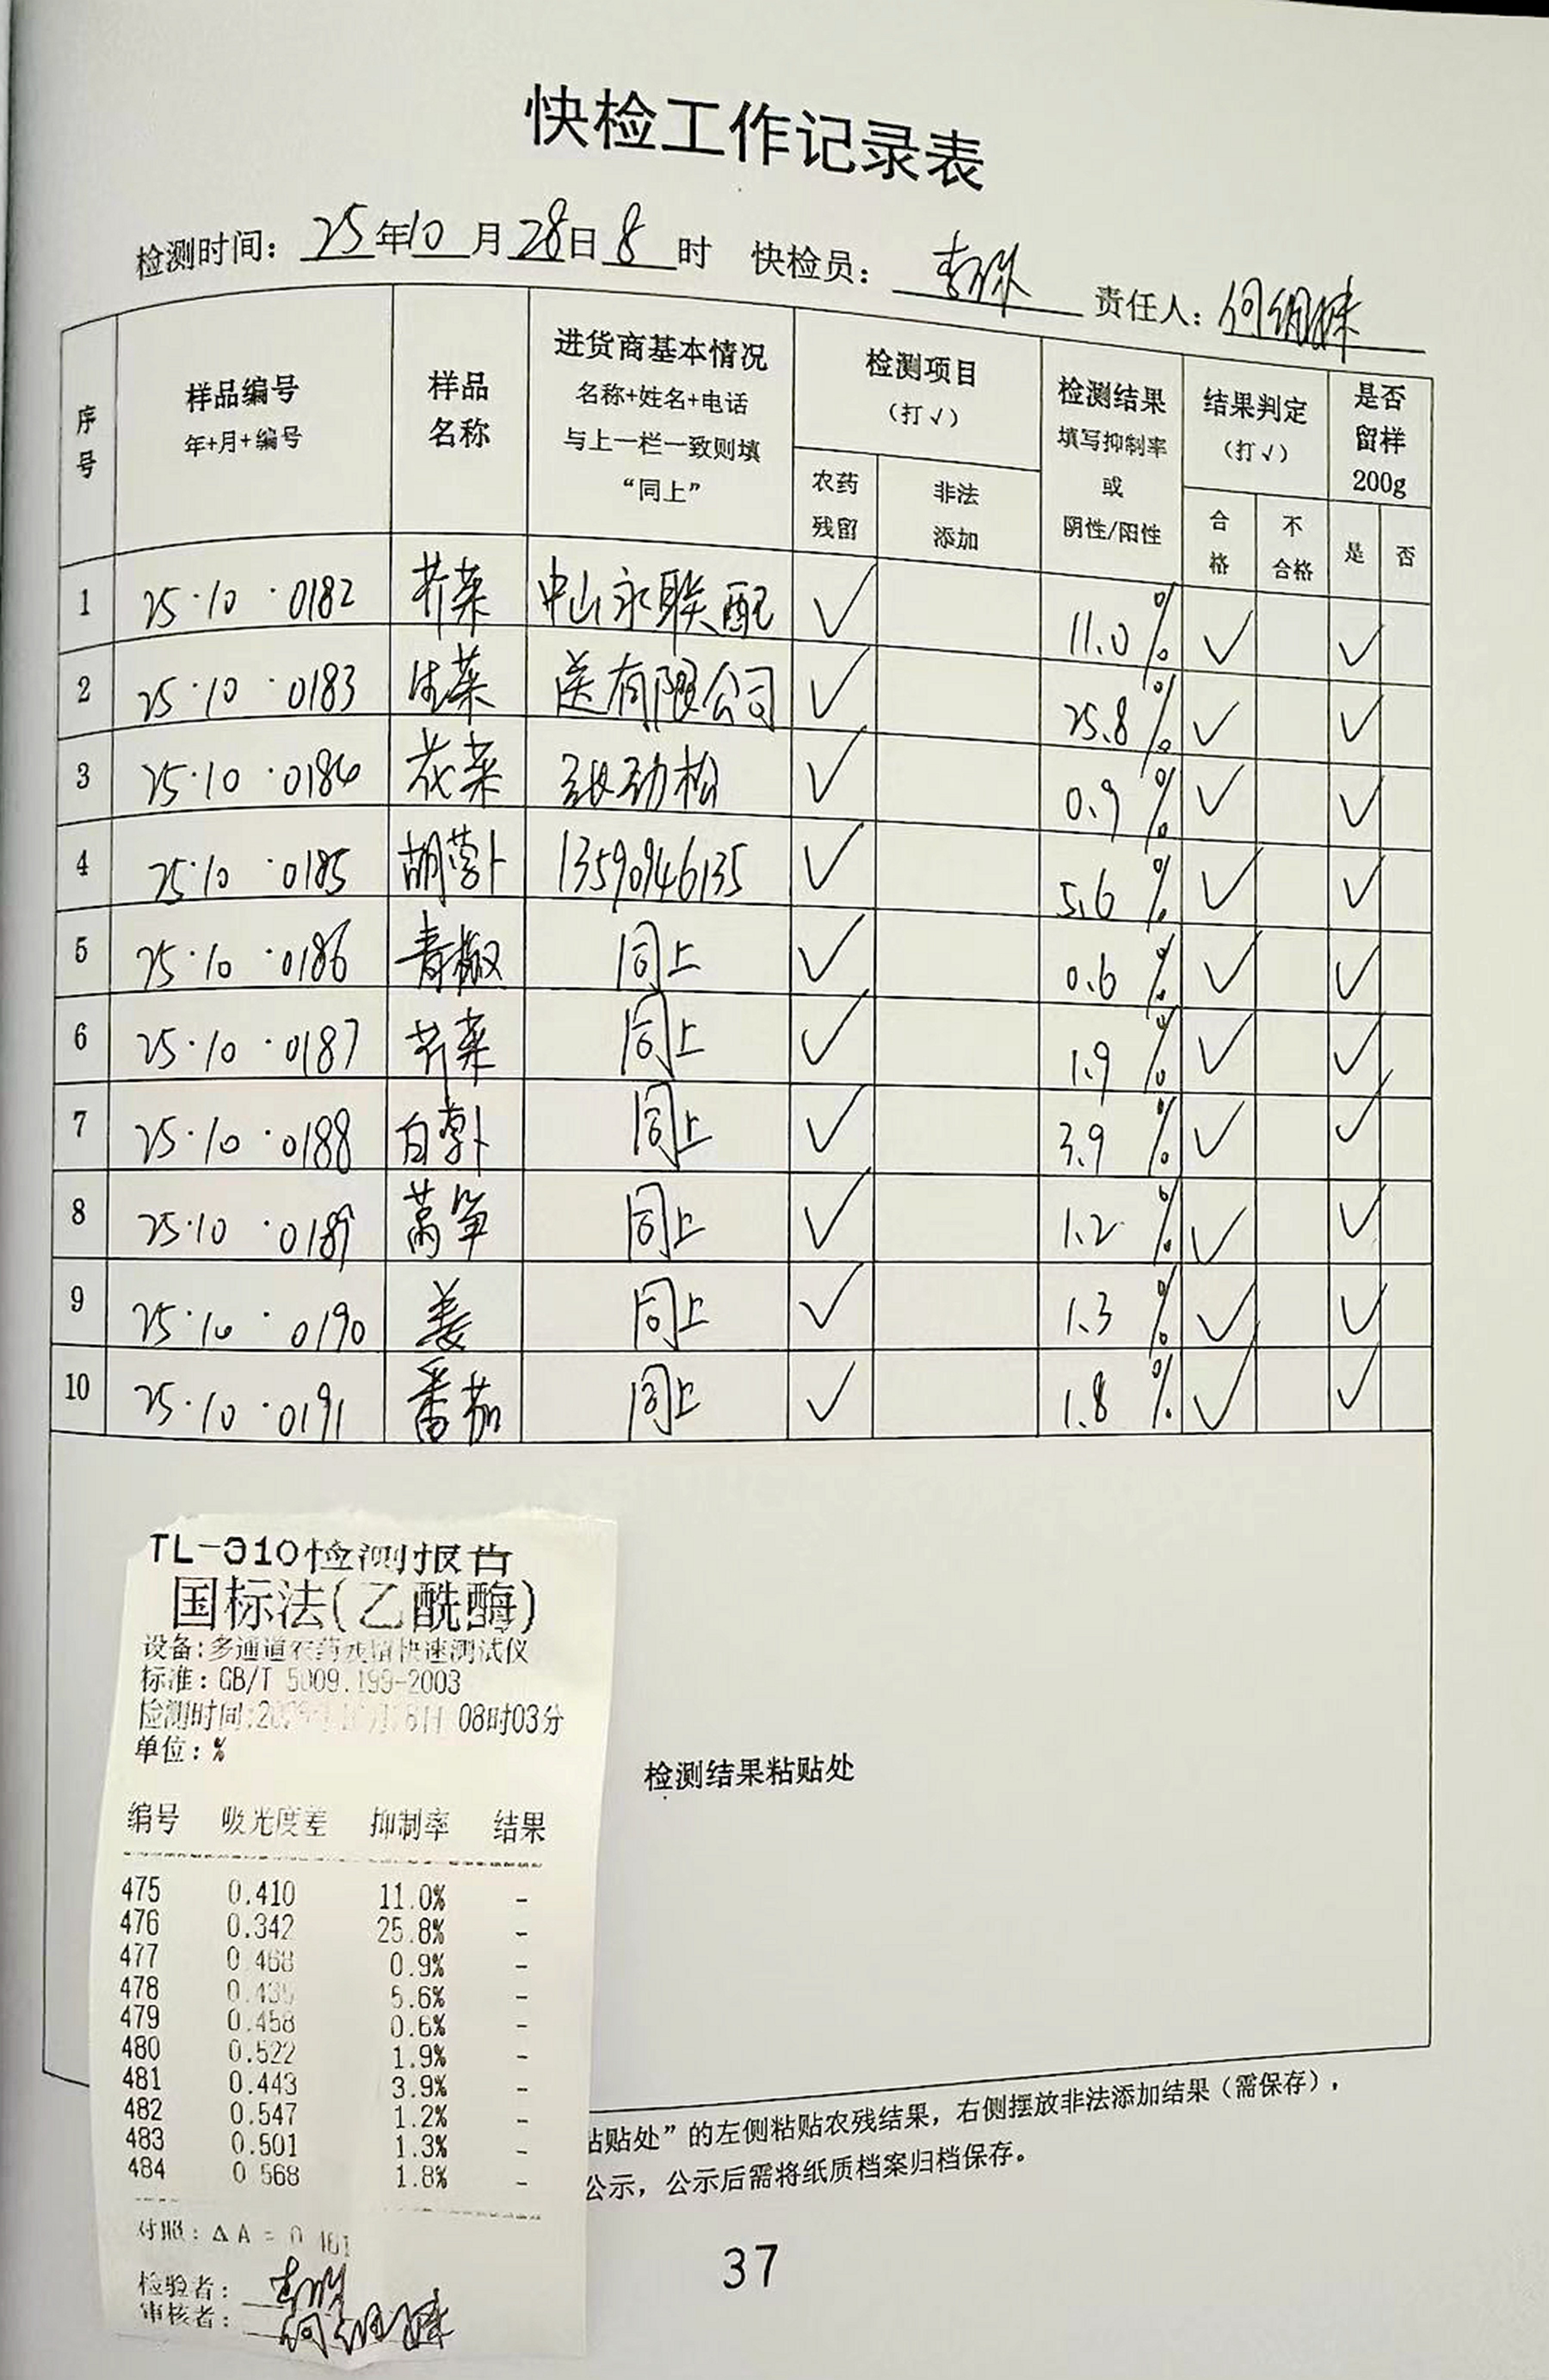 快检工作记录表
检测时间：25年10月28日8时 快检员： 责任人：何细妹
序号 样品编号 年+月+编号 样品名称 进货商基本情况 名称+姓名+电话 与上一栏一致则填“同上” 检测项目（打√） 农药残留 非法添加 检测结果 填写抑制率或阴性/阳性 结果判定（打√） 合格 不合格 是否留样200g 是 否
1 25·10·0182 芥菜 中山永联配 √ 11.0% √ √
2 25·10·0183 生菜 送有限公司 √ 25.8% √ √
3 25·10·0184 花菜 张劲松 √ 0.9% √ √
4 25·10·0185 胡萝卜 13590946135 √ 5.6% √ √
5 25·10·0186 青椒 同上 √ 0.6% √ √
6 25·10·0187 芥菜 同上 √ 1.9% √ √
7 25·10·0188 白萝卜 同上 √ 3.9% √ √
8 25·10·0189 莴笋 同上 √ 1.2% √ √
9 25·10·0190 姜 同上 √ 1.3% √ √
10 25·10·0191 番茄 同上 √ 1.8% √ √
检测结果粘贴处
TL-310检测报告
国标法(乙酰酶)
设备:多通道农药残留快速测试仪
标准：GB/T 5009.199-2003
检测时间: 08时03分
单位：%
编号 吸光度差 抑制率 结果
475 0.410 11.0% -
476 0.342 25.8% -
477 0.468 0.9% -
478 5.6% -
479 0.458 0.6% -
480 0.522 1.9% -
481 0.443 3.9% -
482 0.547 1.2% -
483 0.501 1.3% -
484 0.568 1.8% -
对照：ΔA =
检验者：
审核者：何细妹
粘贴处”的左侧粘贴农残结果，右侧摆放非法添加结果（需保存），
公示，公示后需将纸质档案归档保存。
37